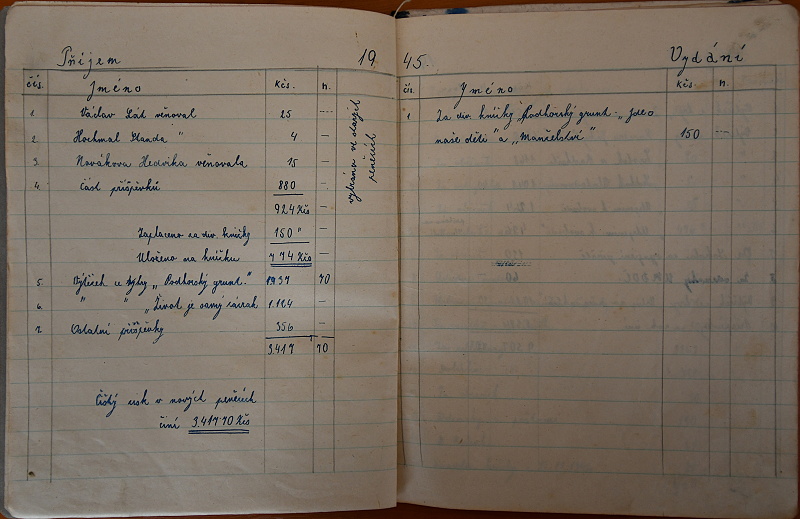 Příjem 19
čís. Jméno Kčs. h.
1. Václav Lát věnoval 25 —
2. Hochmal Standa " 4 —
3. Nováková Hedvika věnovala 15 —
4. Část příspěvků 880 —
924 Kčs —
Zaplaceno za div. knížky 150 " —
Uloženo na knížku 774 Kčs —
5. Výtěžek ze hry „Podhorský grunt." 1937 70
6. " " „Život je samý zázrak 1.124 —
7. Ostatní příspěvky 356 —
3.417 70
Čistý zisk v nových penězích
činí 3.417 70 Kčs
vybráno ve starých
penězích
45. Vydání
čís. Jméno Kčs. h.
1 Za div. knížky „Podhorský grunt", „Jde o
naše děti" a „Manželství" 150 —